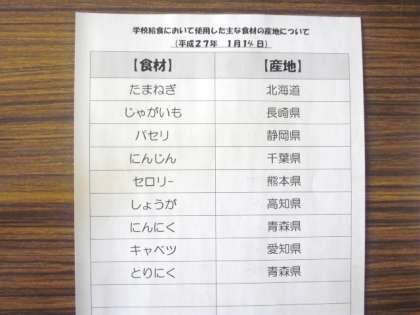 学校給食において使用した主な食材の産地について
（平成２７年　１月１４日）
【食材】　【産地】
たまねぎ　北海道
じゃがいも　長崎県
パセリ　静岡県
にんじん　千葉県
セロリー　熊本県
しょうが　高知県
にんにく　青森県
キャベツ　愛知県
とりにく　青森県